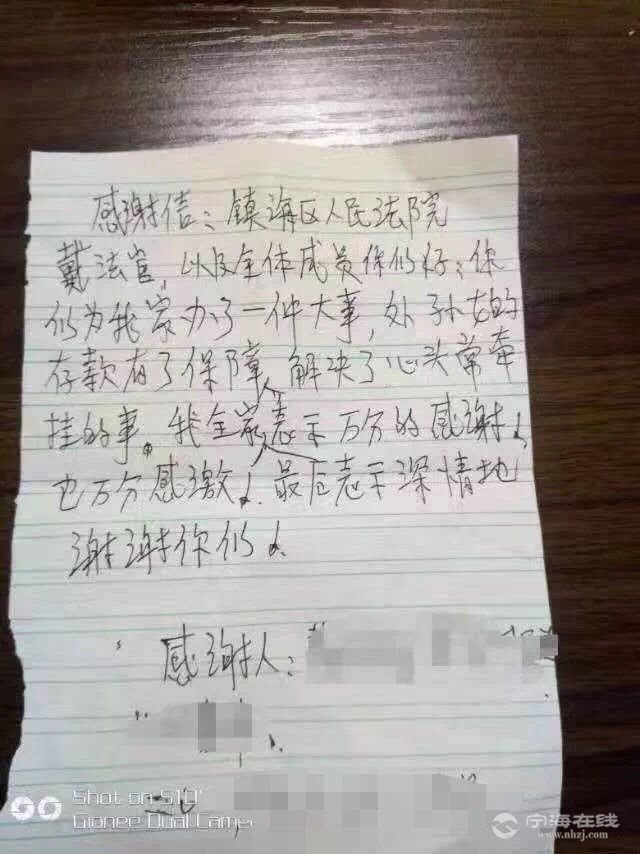 感谢信：镇海区人民法院
戴法官，以及全体成员你们好：你
们为我家办了一件大事，外孙女的
存款有了保障，解决了心头常牵
挂的事。我全家人表示万分的感谢、
也万分感激、最后表示深情地
谢谢你们、
感谢人：
Shot on S10
Gionee Dual Camera
宁海在线
www.nhzj.com